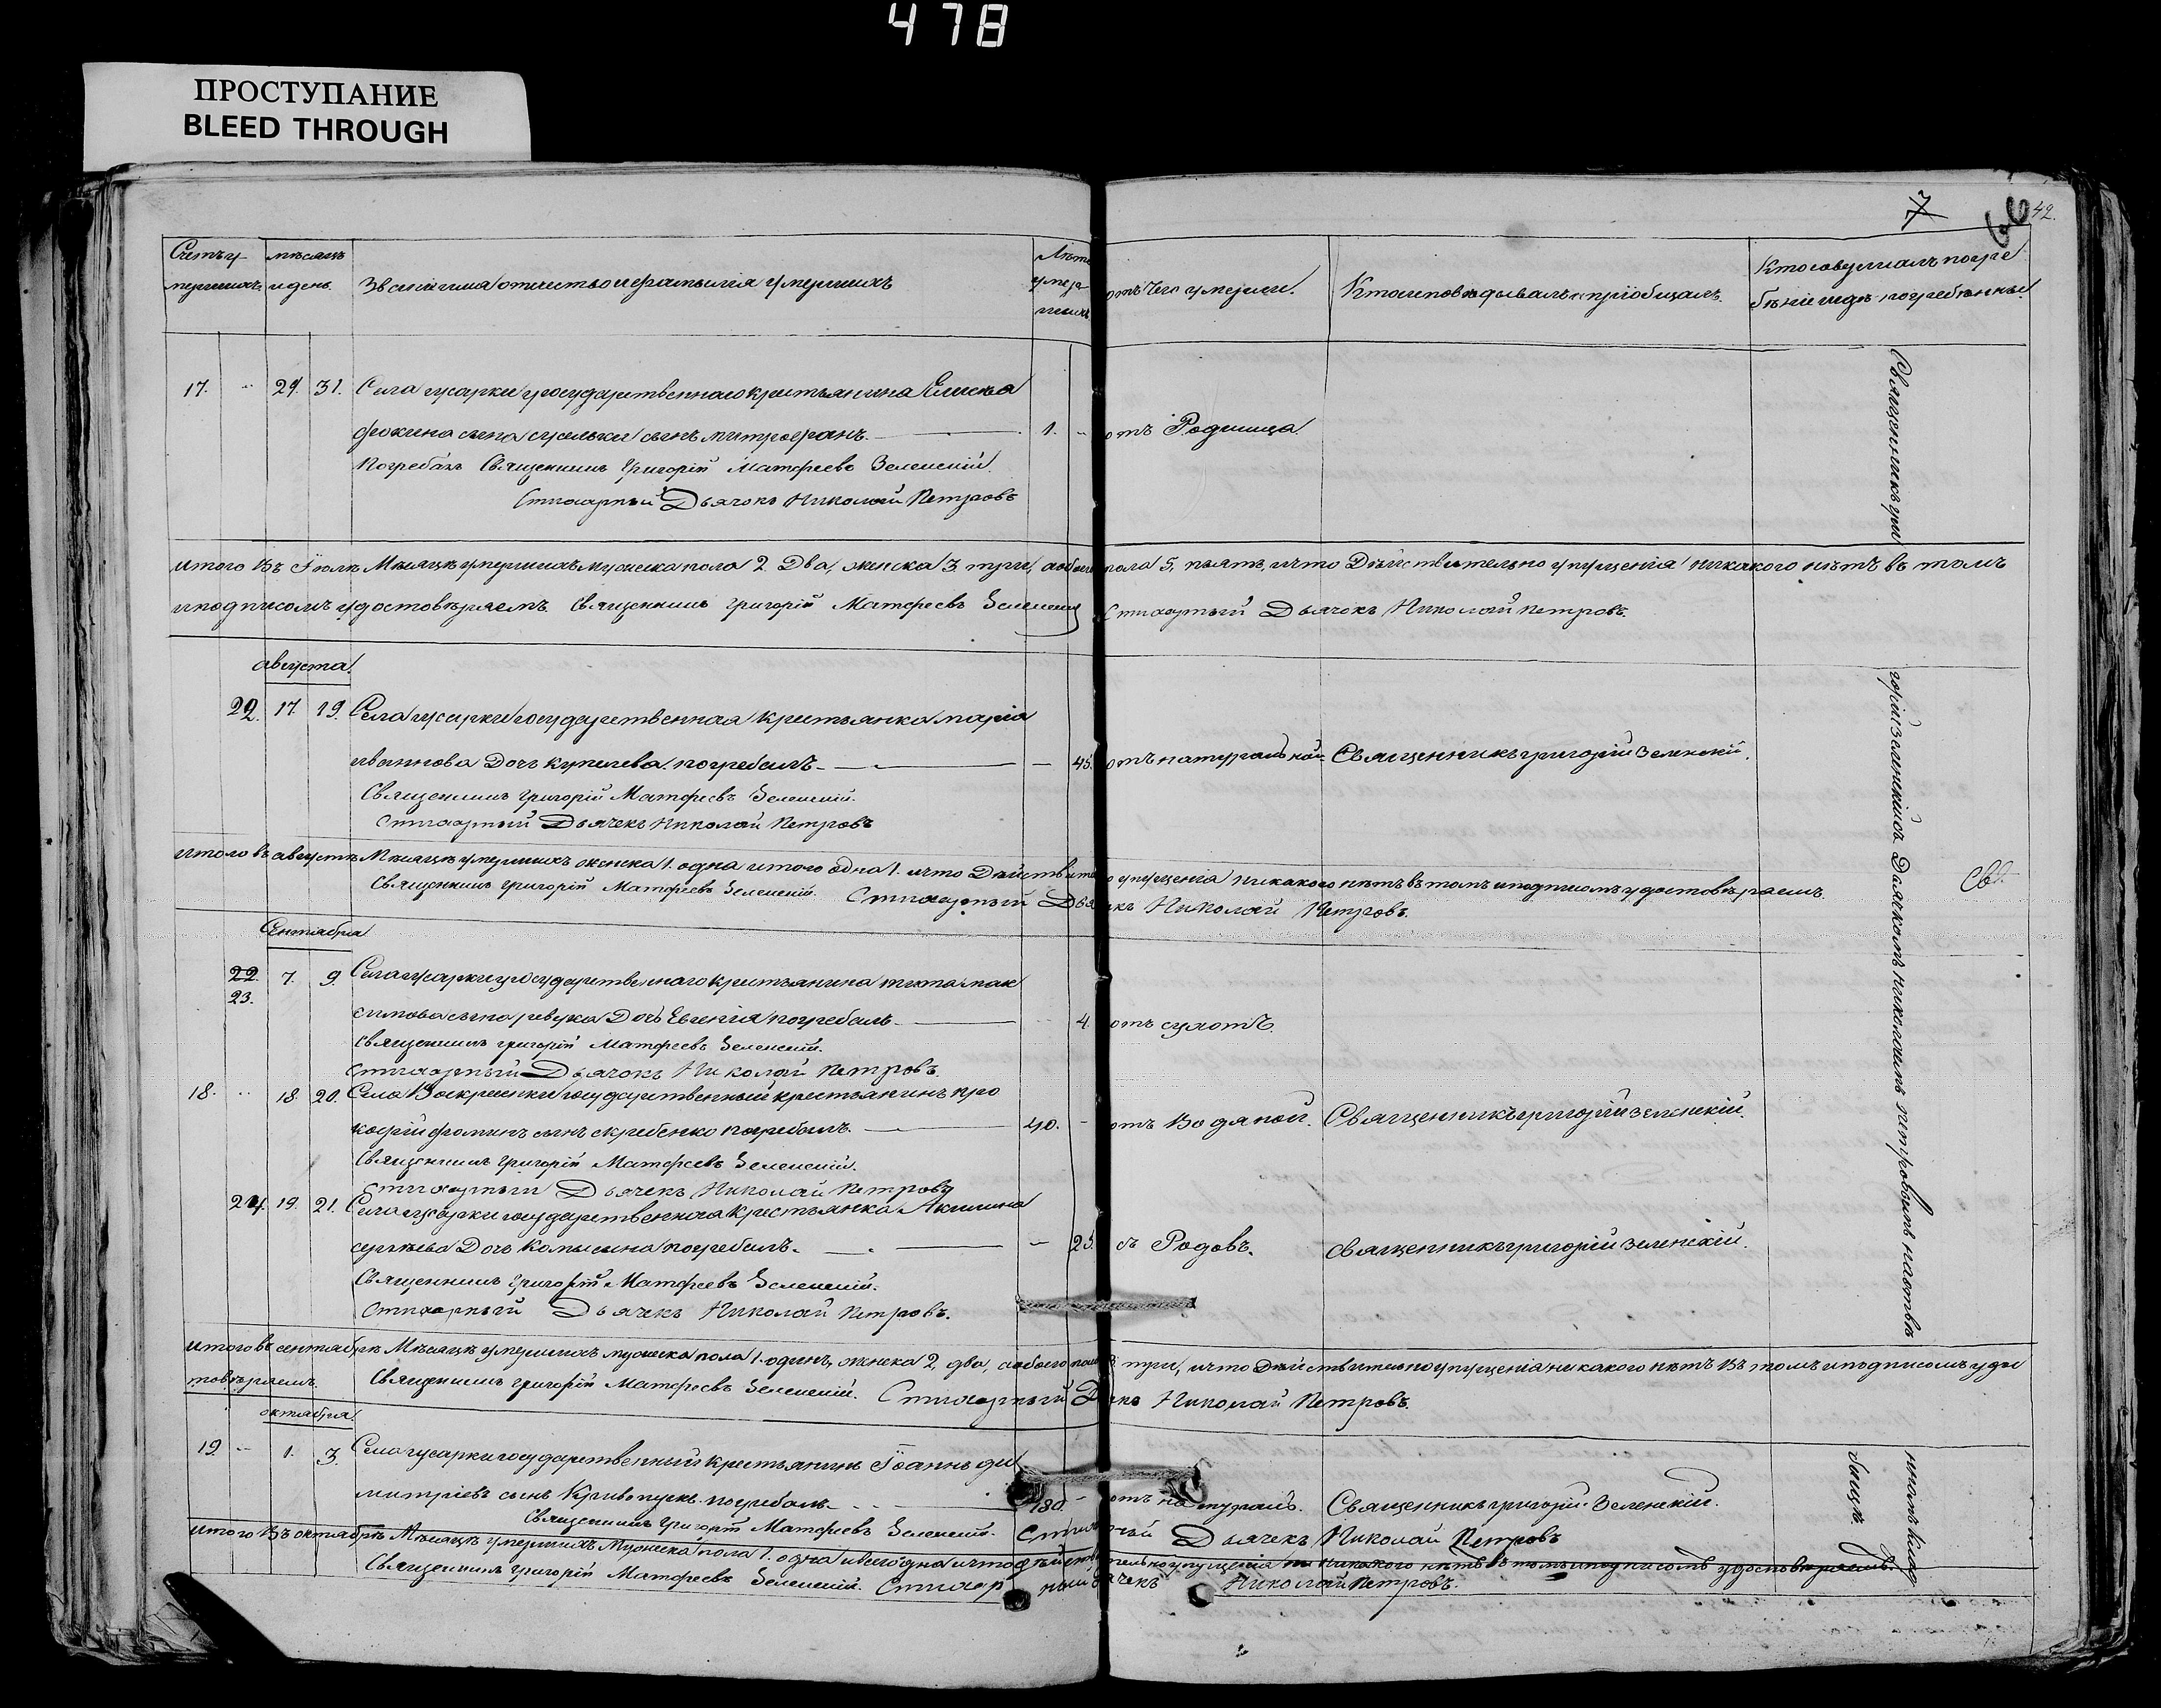 478
ПРОСТУПАНИЕ
BLEED THROUGH
7
66 42.
Счетъ у-
мершихъ
мѣсяцъ
и день
Званіе имя отчество и фамилія умершихъ
Лѣта
умер-
шихъ
отъ чего умерли.
Кто исповѣдывалъ и пріобщалъ.
Кто совершалъ погре
бѣніе и гдѣ погребѣнны.
17. 29. 31. Села гусарки государственнаго крестьянина Елисѣя
фокина сына сын митрофанъ. 1. отъ Родимца.
Погребалъ Священникъ Григорій Матфеевъ Зеленскій.
Стихарный Дьячокъ Николай Петровъ
итого въ Іюлѣ Мѣсяцѣ умершихъ мужеска пола 2. Два, женска 3. три, а обоего пола 5, пять, что Дѣйствительно упущенія никакого нѣтъ въ томъ
и подписомъ удостовѣряемъ. Священникъ Григорій Матфеевъ Зеленскій Стихарный Дьячокъ Николай Петровъ.
августа
22. 17. 19. Села гусарки государственная крестьянка марія
иваннова Дочь купелева. погребалъ 45. отъ натуральной. Священникъ григорій Зеленскій.
Священникъ Григорій Матфеевъ Зеленскій.
Стихарный Дьячекъ Николай Петровъ
итого въ августѣ Мѣсяцѣ умершихъ женска 1. одна итого одна 1. что Дѣйствительно упущенія никакого нѣтъ въ томъ и подписомъ удостовѣряемъ.
Священникъ Григорій Матфеевъ Зеленскій. Стихарный Дьячекъ Николай Петровъ.
Сентября
22.
23. 7. 9. Села гусарки государственнаго крестьянина тита мак
симова сына ревука Дочь Евгенія погребалъ 4. отъ сухотъ.
Священникъ Григорій Матфеевъ Зеленскій.
Стихарный Дьячокъ Николай Петровъ
18. 18. 20. Села Воскресенки государственный крестьянинъ про
кофій фоминъ сынъ скребенко погребалъ. 40. отъ Водяной. Священникъ григорій зеленскій.
Священникъ Григорій Матфеевъ Зеленскій.
Стихарный Дьячекъ Николай Петровъ
24. 19. 21. Села гусарки государственная крестьянка Акилина
сергѣева Дочь Комысына погребалъ. 25. съ Родовъ. священникъ григорій зеленскій.
Священникъ Григорій Матфеевъ Зеленскій.
Стихарный Дьячекъ Николай Петровъ.
итого въ сентябрѣ Мѣсяцѣ умершихъ мужеска пола 1. одинъ, женска 2, два, а обоего пола 3 три, что Дѣйствительно упущенія никакого нѣтъ въ томъ и подписомъ удос
товѣряемъ. Священникъ Григорій Матфеевъ Зеленскій. Стихарный Дьячекъ Николай Петровъ.
октября
19. 1. 3. Села гусарки государственный крестьянинъ Іоаннъ ди
митріевъ сынъ Кривопускъ. погребалъ 80. отъ натураль. Священникъ григорій Зеленскій.
Священникъ Григорій Матфеевъ Зеленскій. Стихарный Дьячекъ Николай Петровъ
итого въ октябрѣ Мѣсяцѣ умершихъ Мужеска пола 1. одна всего одна что дѣйствительно упущенія никакого нѣтъ въ томъ и подписомъ удостовѣряемъ.
Священникъ Григорій Матфеевъ Зеленскій. Стихарный Дьячекъ Николай Петровъ.
Священникъ гри
горій Зеленскій съ Дьячкомъ николаемъ петровымъ на отвѣ
нномъ клад
бищѣ
Свя